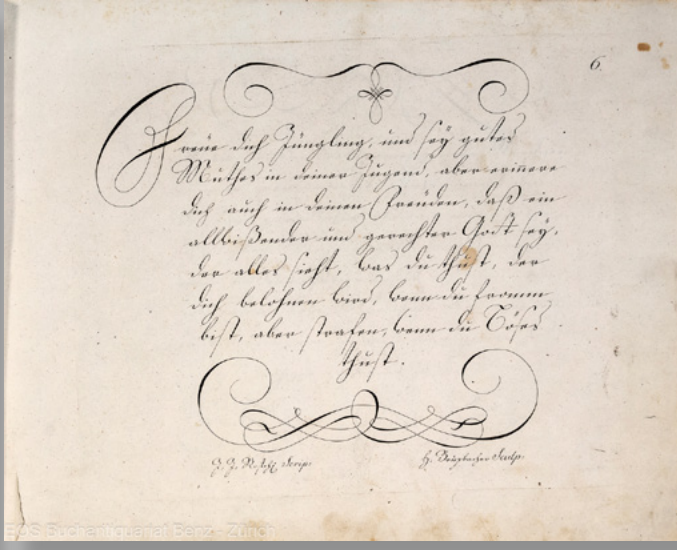 6
Freüe dich Jüngling, und sey gutes
Muthes in deiner Jugend, aber erinnere
dich auch in deinen Freüden, daß ein
allwißender und gerechter Gott sey,
der alles sieht, was du thust, der
dich belohnen wird, wenn du fromm
bist, aber strafen, wenn du Böses
thust.
J. J. Scrips.
H. Sculp.
EOS Buchantiquariat Benz - Zürich